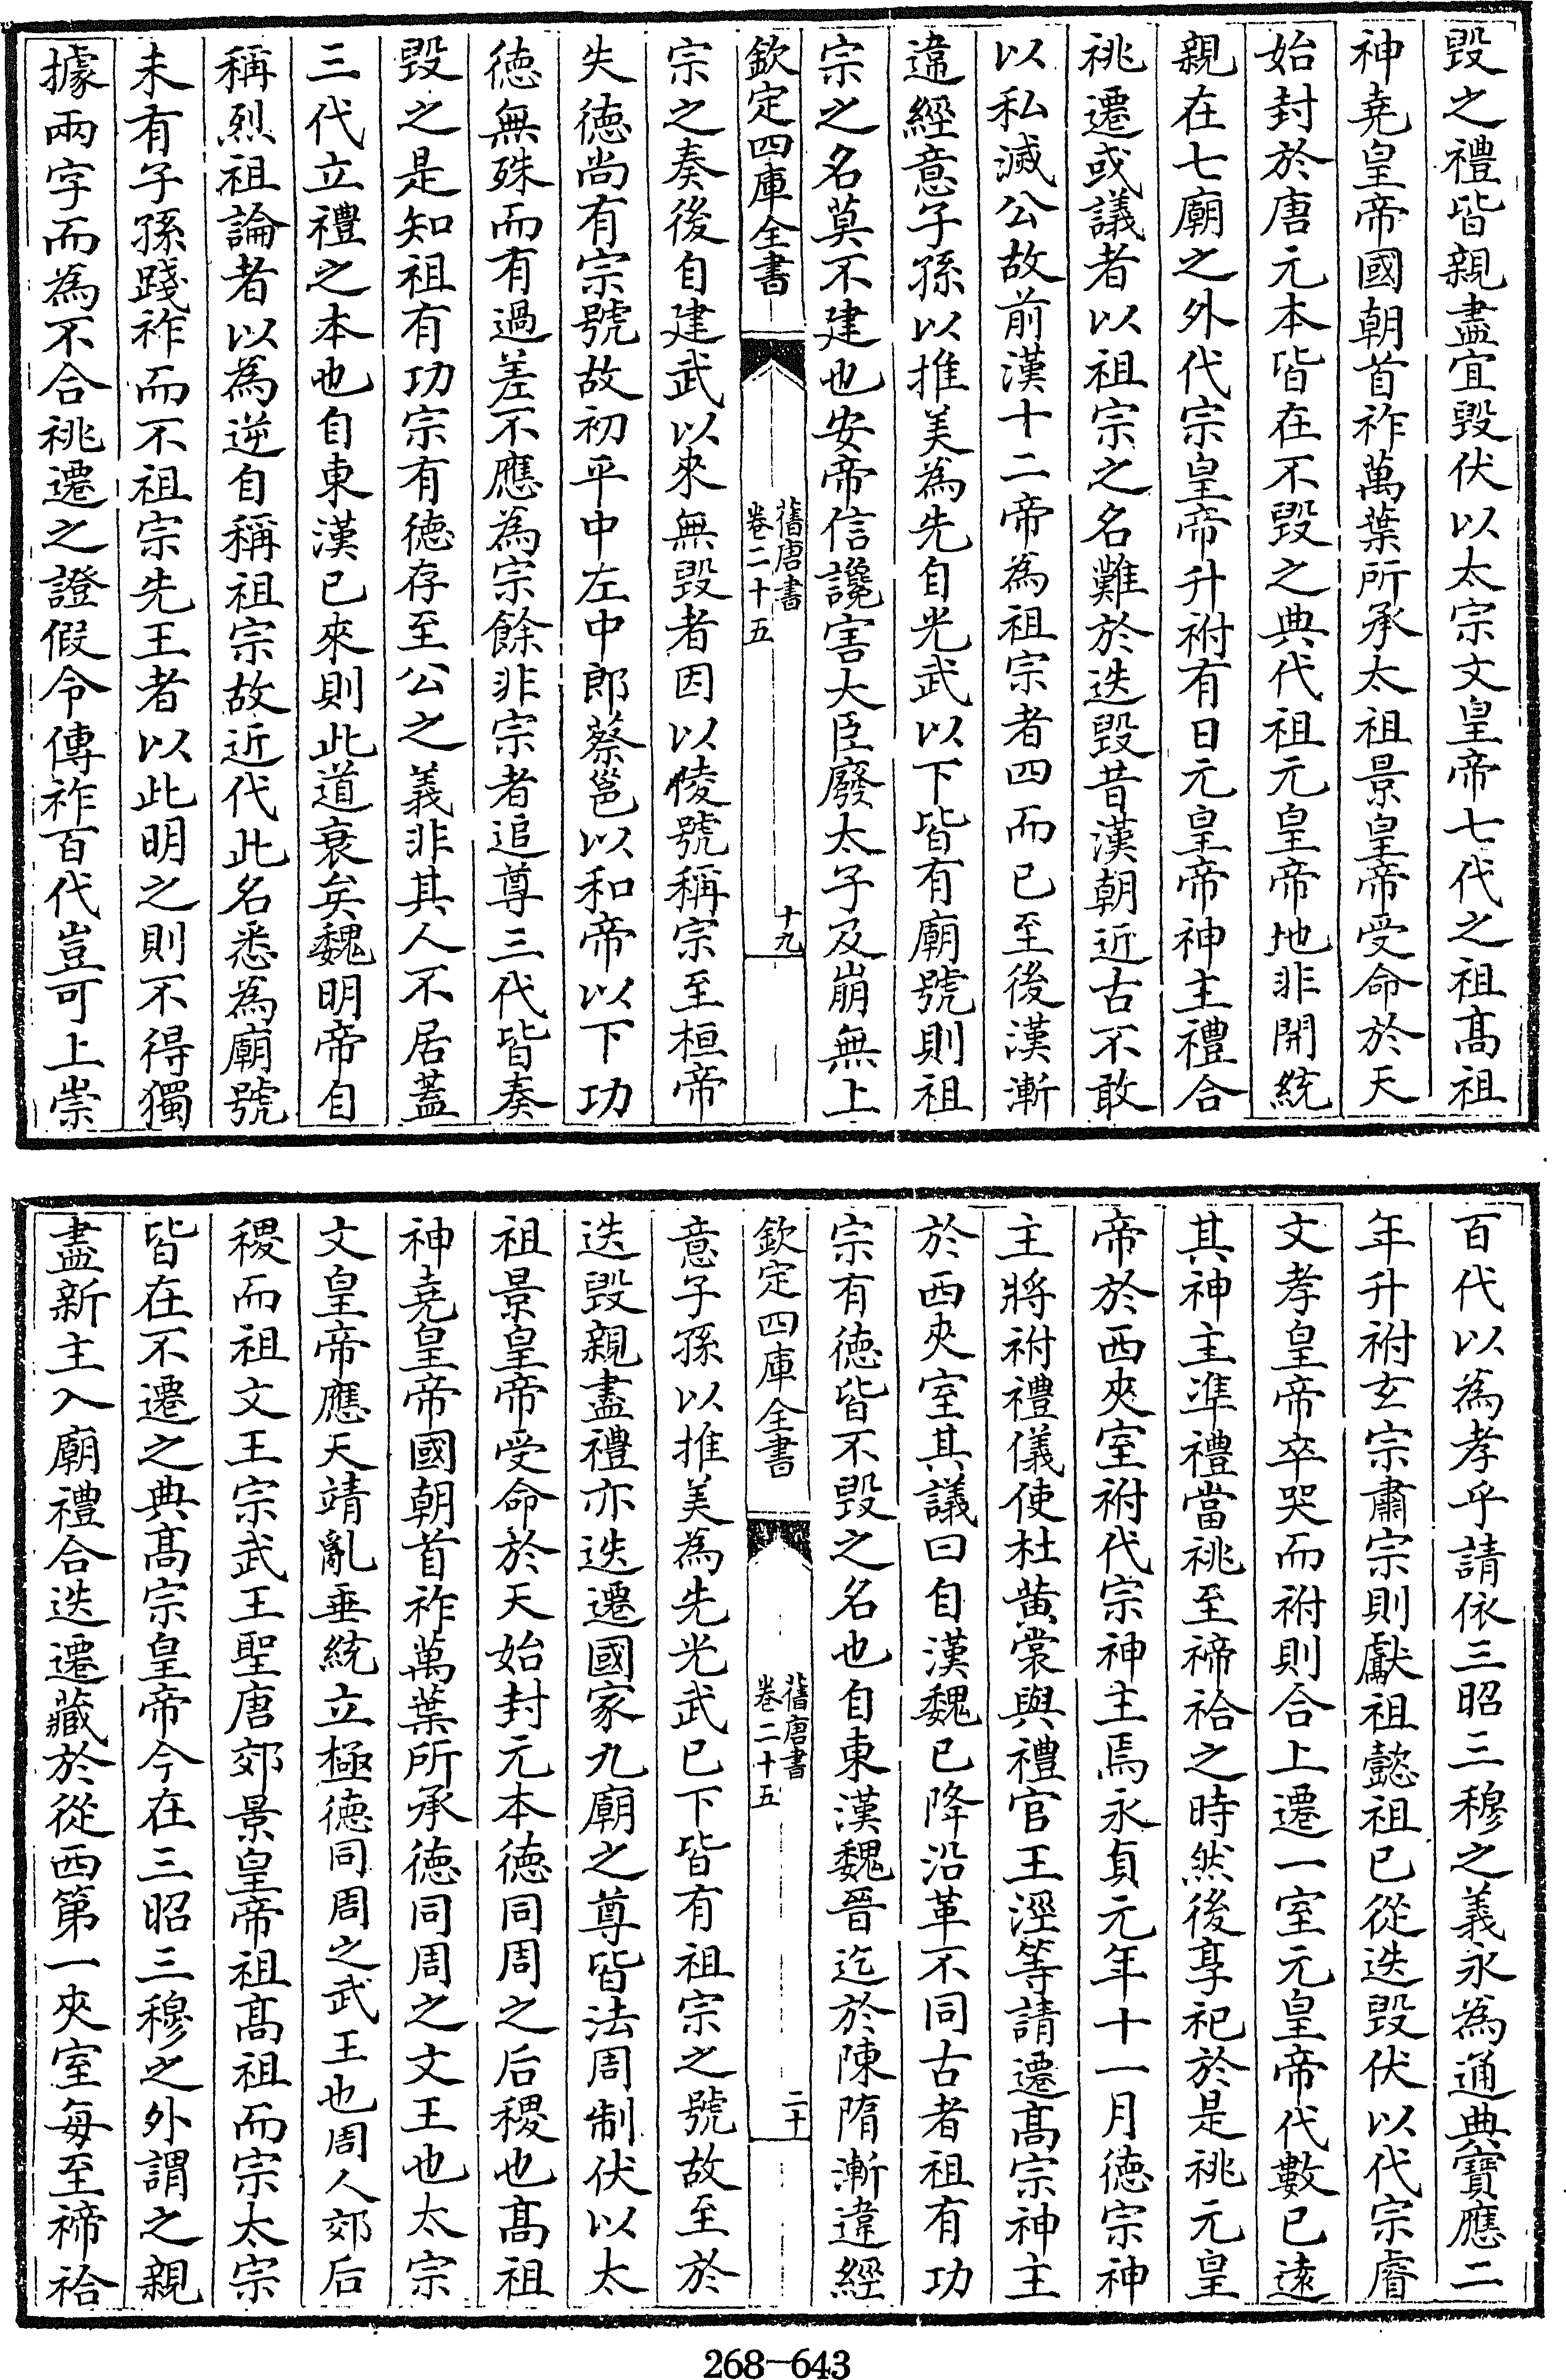 毀之禮皆親盡宜毀伏以太宗文皇帝七代之祖髙祖
神堯皇帝國朝首祚萬葉所承太祖景皇帝受命於天
始封於唐元本皆在不毀之典代祖元皇帝地非開統
親在七廟之外代宗皇帝升祔有日元皇帝神主禮合
祧遷或議者以祖宗之名難於迭毀昔漢朝近古不敢
以私滅公故前漢十二帝為祖宗者四而已至後漢漸
違經意子孫以推美為先自光武以下皆有廟號則祖
宗之名莫不建也安帝信讒害大臣廢太子及崩無上
欽定四庫全書
舊唐書
卷二十五
十九
宗之奏後自建武以來無毀者因以陵號稱宗至桓帝
失徳尚有宗號故初平中左中郎蔡邕以和帝以下功
徳無殊而有過差不應為宗餘非宗者追尊三代皆奏
毀之是知祖有功宗有徳存至公之義非其人不居蓋
三代立禮之本也自東漢已來則此道衰矣魏明帝自
稱烈祖論者以為逆自稱祖宗故近代此名悉為廟號
未有子孫踐祚而不祖宗先王者以此明之則不得獨
據兩字而為不合祧遷之證假令傳祚百代豈可上崇
百代以為孝乎請依三昭三穆之義永為通典寶應二
年升祔玄宗肅宗則獻祖懿祖已從迭毀伏以代宗睿
文孝皇帝卒哭而祔則合上遷一室元皇帝代數已遠
其神主準禮當祧至禘祫之時然後享祀於是祧元皇
帝於西夾室祔代宗神主焉永貞元年十一月徳宗神
主將祔禮儀使杜黄裳與禮官王涇等請遷髙宗神主
於西夾室其議曰自漢魏已降沿革不同古者祖有功
宗有徳皆不毀之名也自東漢魏晉迄於陳隋漸違經
欽定四庫全書
舊唐書
卷二十五
二十
意子孫以推美為先光武已下皆有祖宗之號故至於
迭毀親盡禮亦迭遷國家九廟之尊皆法周制伏以太
祖景皇帝受命於天始封元本徳同周之后稷也髙祖
神堯皇帝國朝首祚萬葉所承徳同周之文王也太宗
文皇帝應天靖亂垂統立極徳同周之武王也周人郊后
稷而祖文王宗武王聖唐郊景皇帝祖髙祖而宗太宗
皆在不遷之典髙宗皇帝今在三昭三穆之外謂之親
盡新主入廟禮合迭遷藏於從西第一夾室每至禘祫
268-643